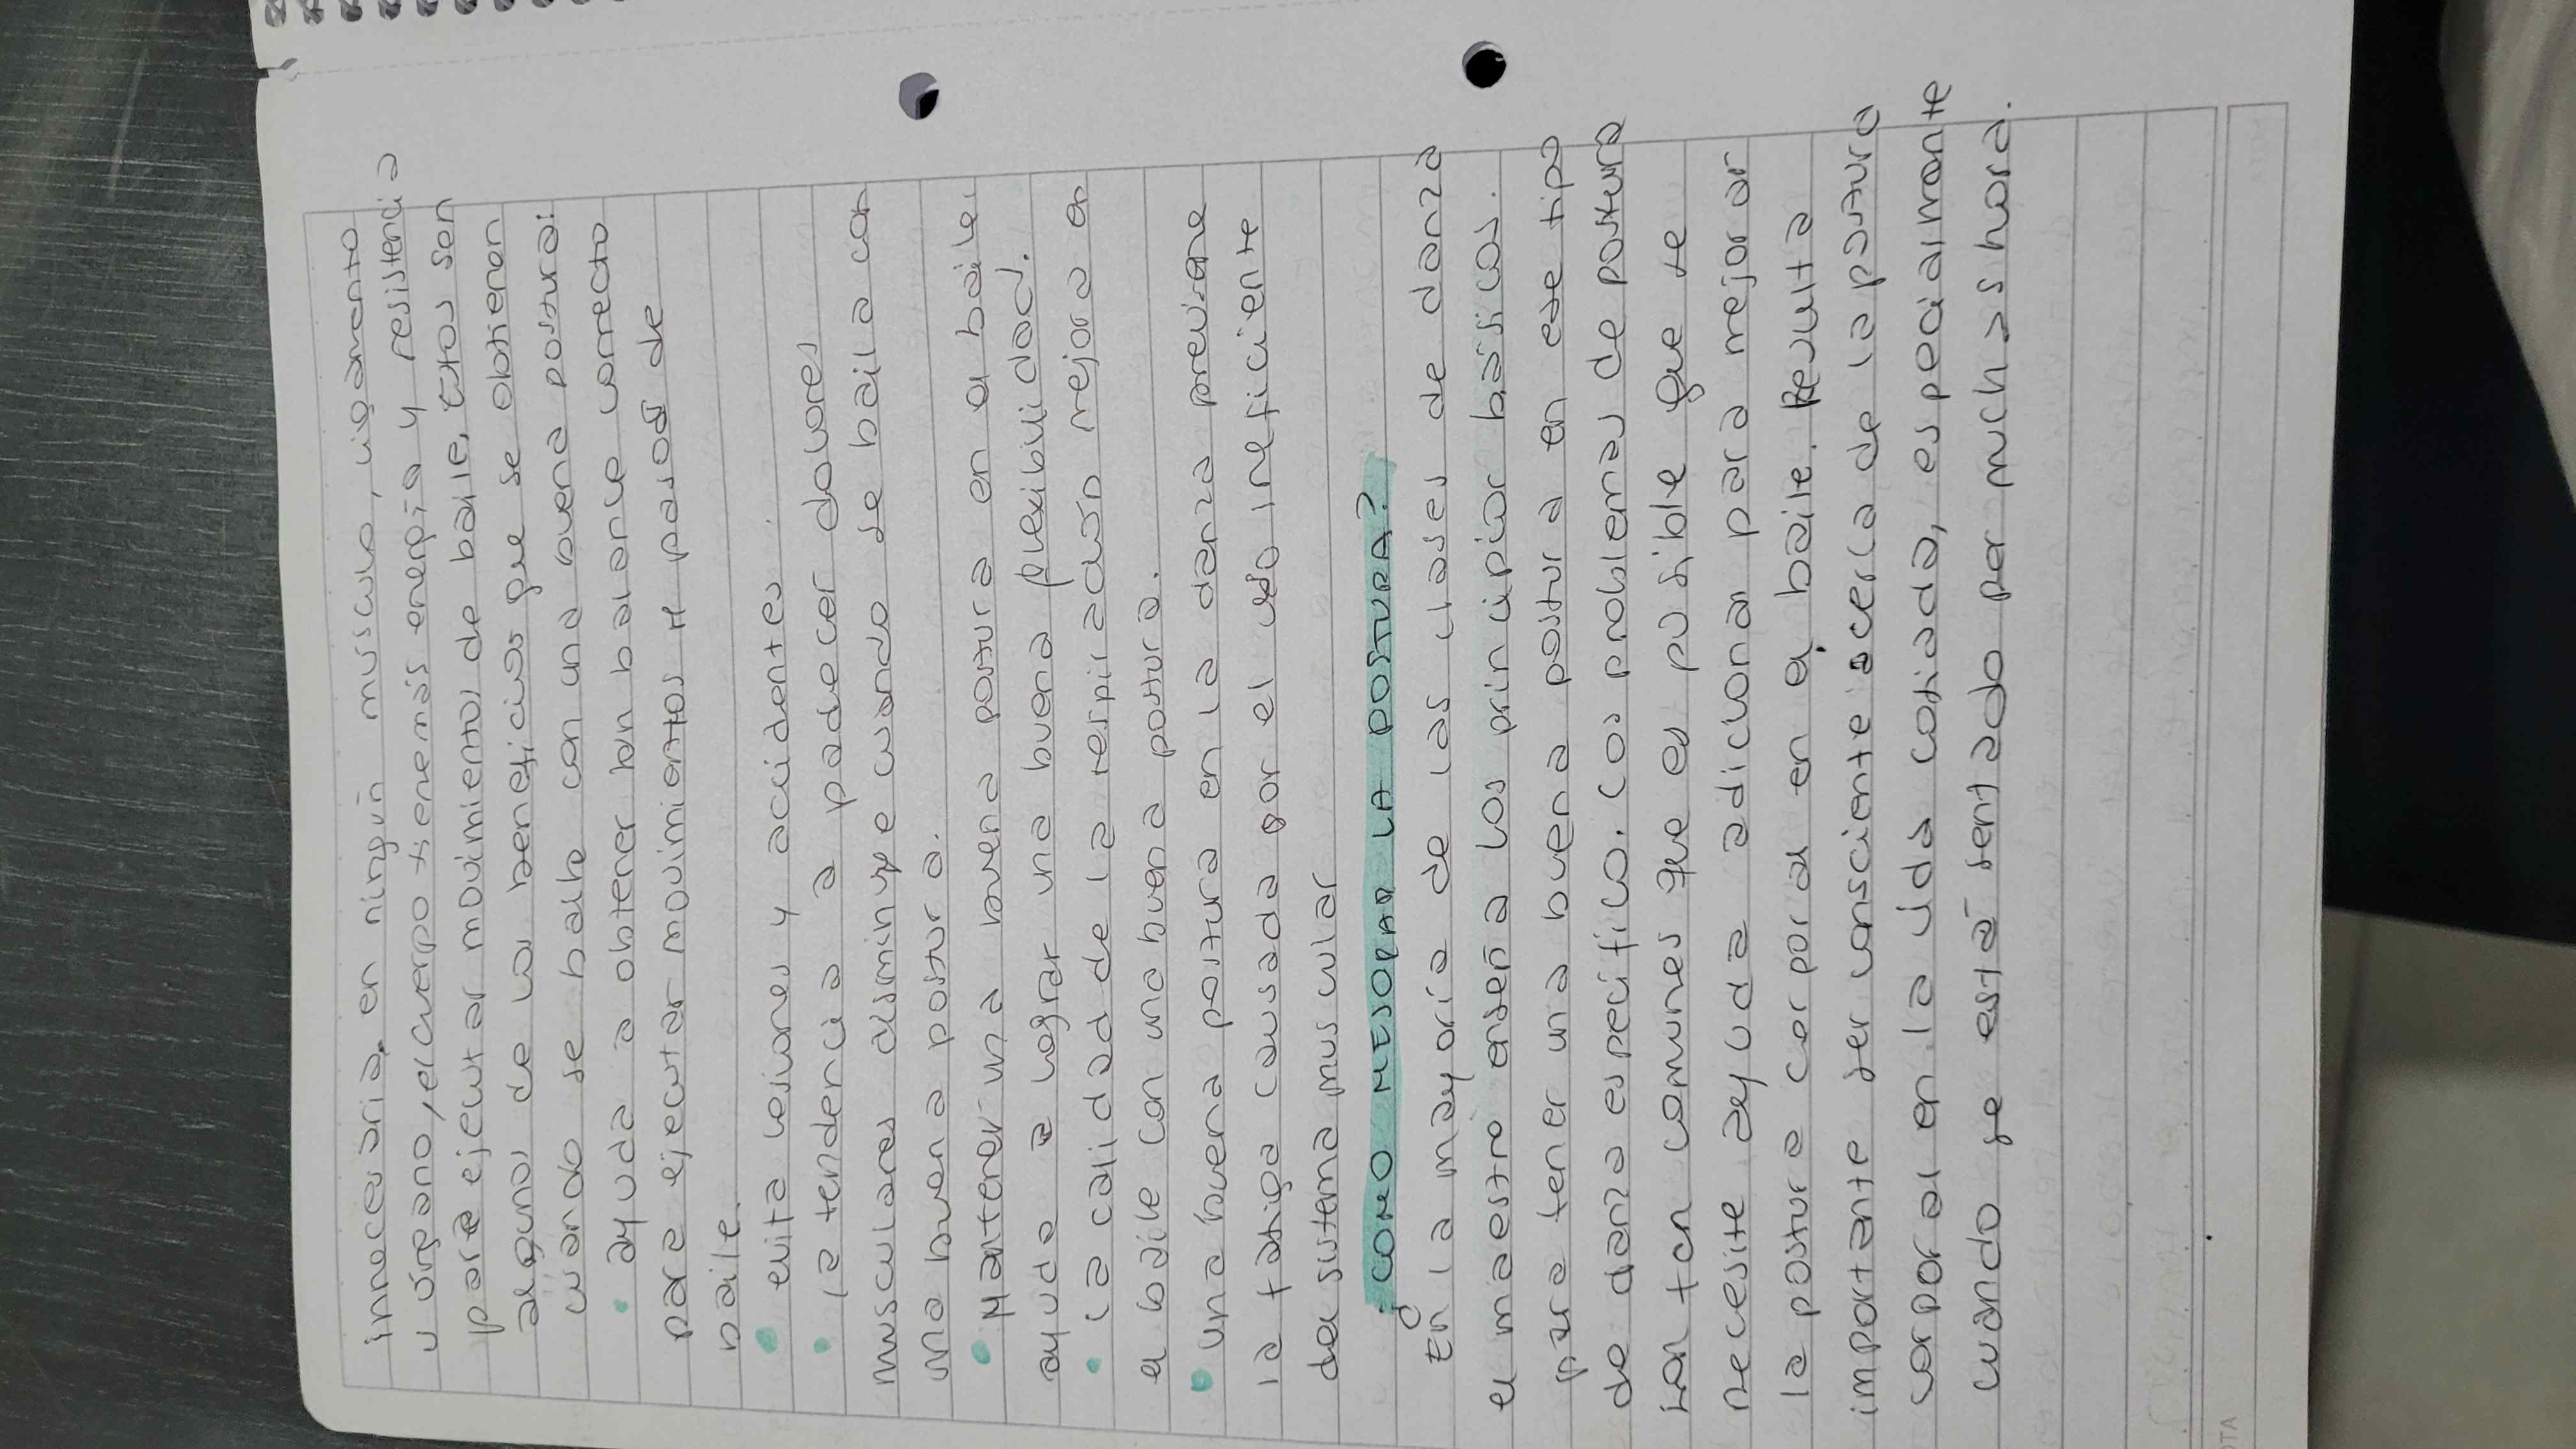 innecesaria, en ningún musculo, ligamento
u órgano, el cuerpo tienemás energía y resistencia
para ejecutar movimientos de baile, Estos son
algunos de los beneficios que se obtienen
cuando se baila con una buena postura:
• ayuda a obtener un balance correcto
para ejecutar movimientos y pasos de
baile.
• evita lesiones y accidentes.
• la tendencia a padecer dolores
musculares disminuye cuando se baila con
una buena postura.
• Mantener una buena postura en el baile.
ayuda a lograr una buena flexibilidad.
• la calidad de la respiración mejora en
el baile con una buena postura.
• una buena postura en la danza previene
la fatiga causada por el uso ineficiente
del sistema muscular
¿COMO MEJORAR LA POSTURA?
En la mayoría de las clases de danza
el maestro enseña los principios básicos.
para tener una buena postura en ese tipo
de danza específico. Los problemas de postura
son tan comunes que es posible que te
necesite ayuda adicional para mejorar
la postura corporal en el baile. Resulta
importante ser consciente acerca de la postura
corporal en la vida cotiada, especialmente
cuando se está sentado por muchas hora.
OTA